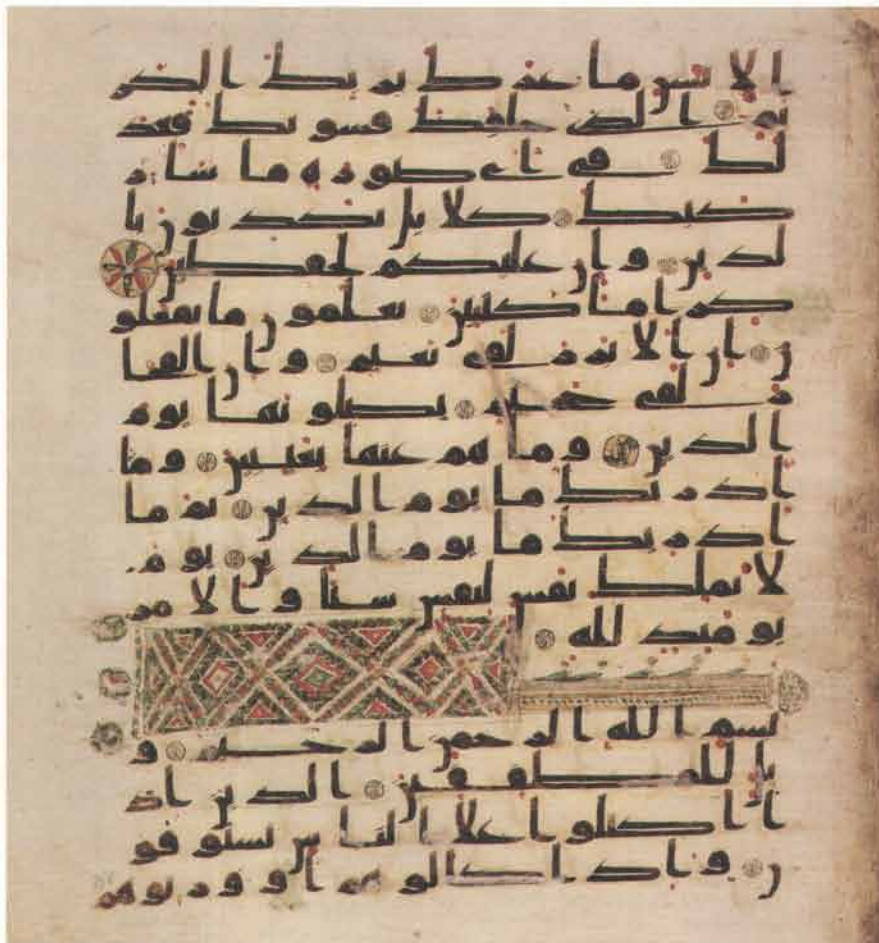 ا الانسن ما غرك بربك الكر
يم الذى خلقك فسويك فعد
لك فى اى صورة ما شاء
ركبك كلا بل تكذبون با
لدين وان عليكم لحفظين
كراما كتبين يعلمون ما تفعلو
ن ان الابرار لفى نعيم وان الفجا
ر لفى جحيم يصلونها يوم
الدين وما هم عنها بغئبين وما
ادريك ما يوم الدين ثم ما
ادريك ما يوم الدين يوم
لا تملك نفس لنفس شيئا والامر
يومئذ لله
بسم الله الرحمن الرحيم و
يل للمطففين الذين اذ
ا اكتالوا على الناس يستوفو
ن واذا كالوهم او وزنوهم